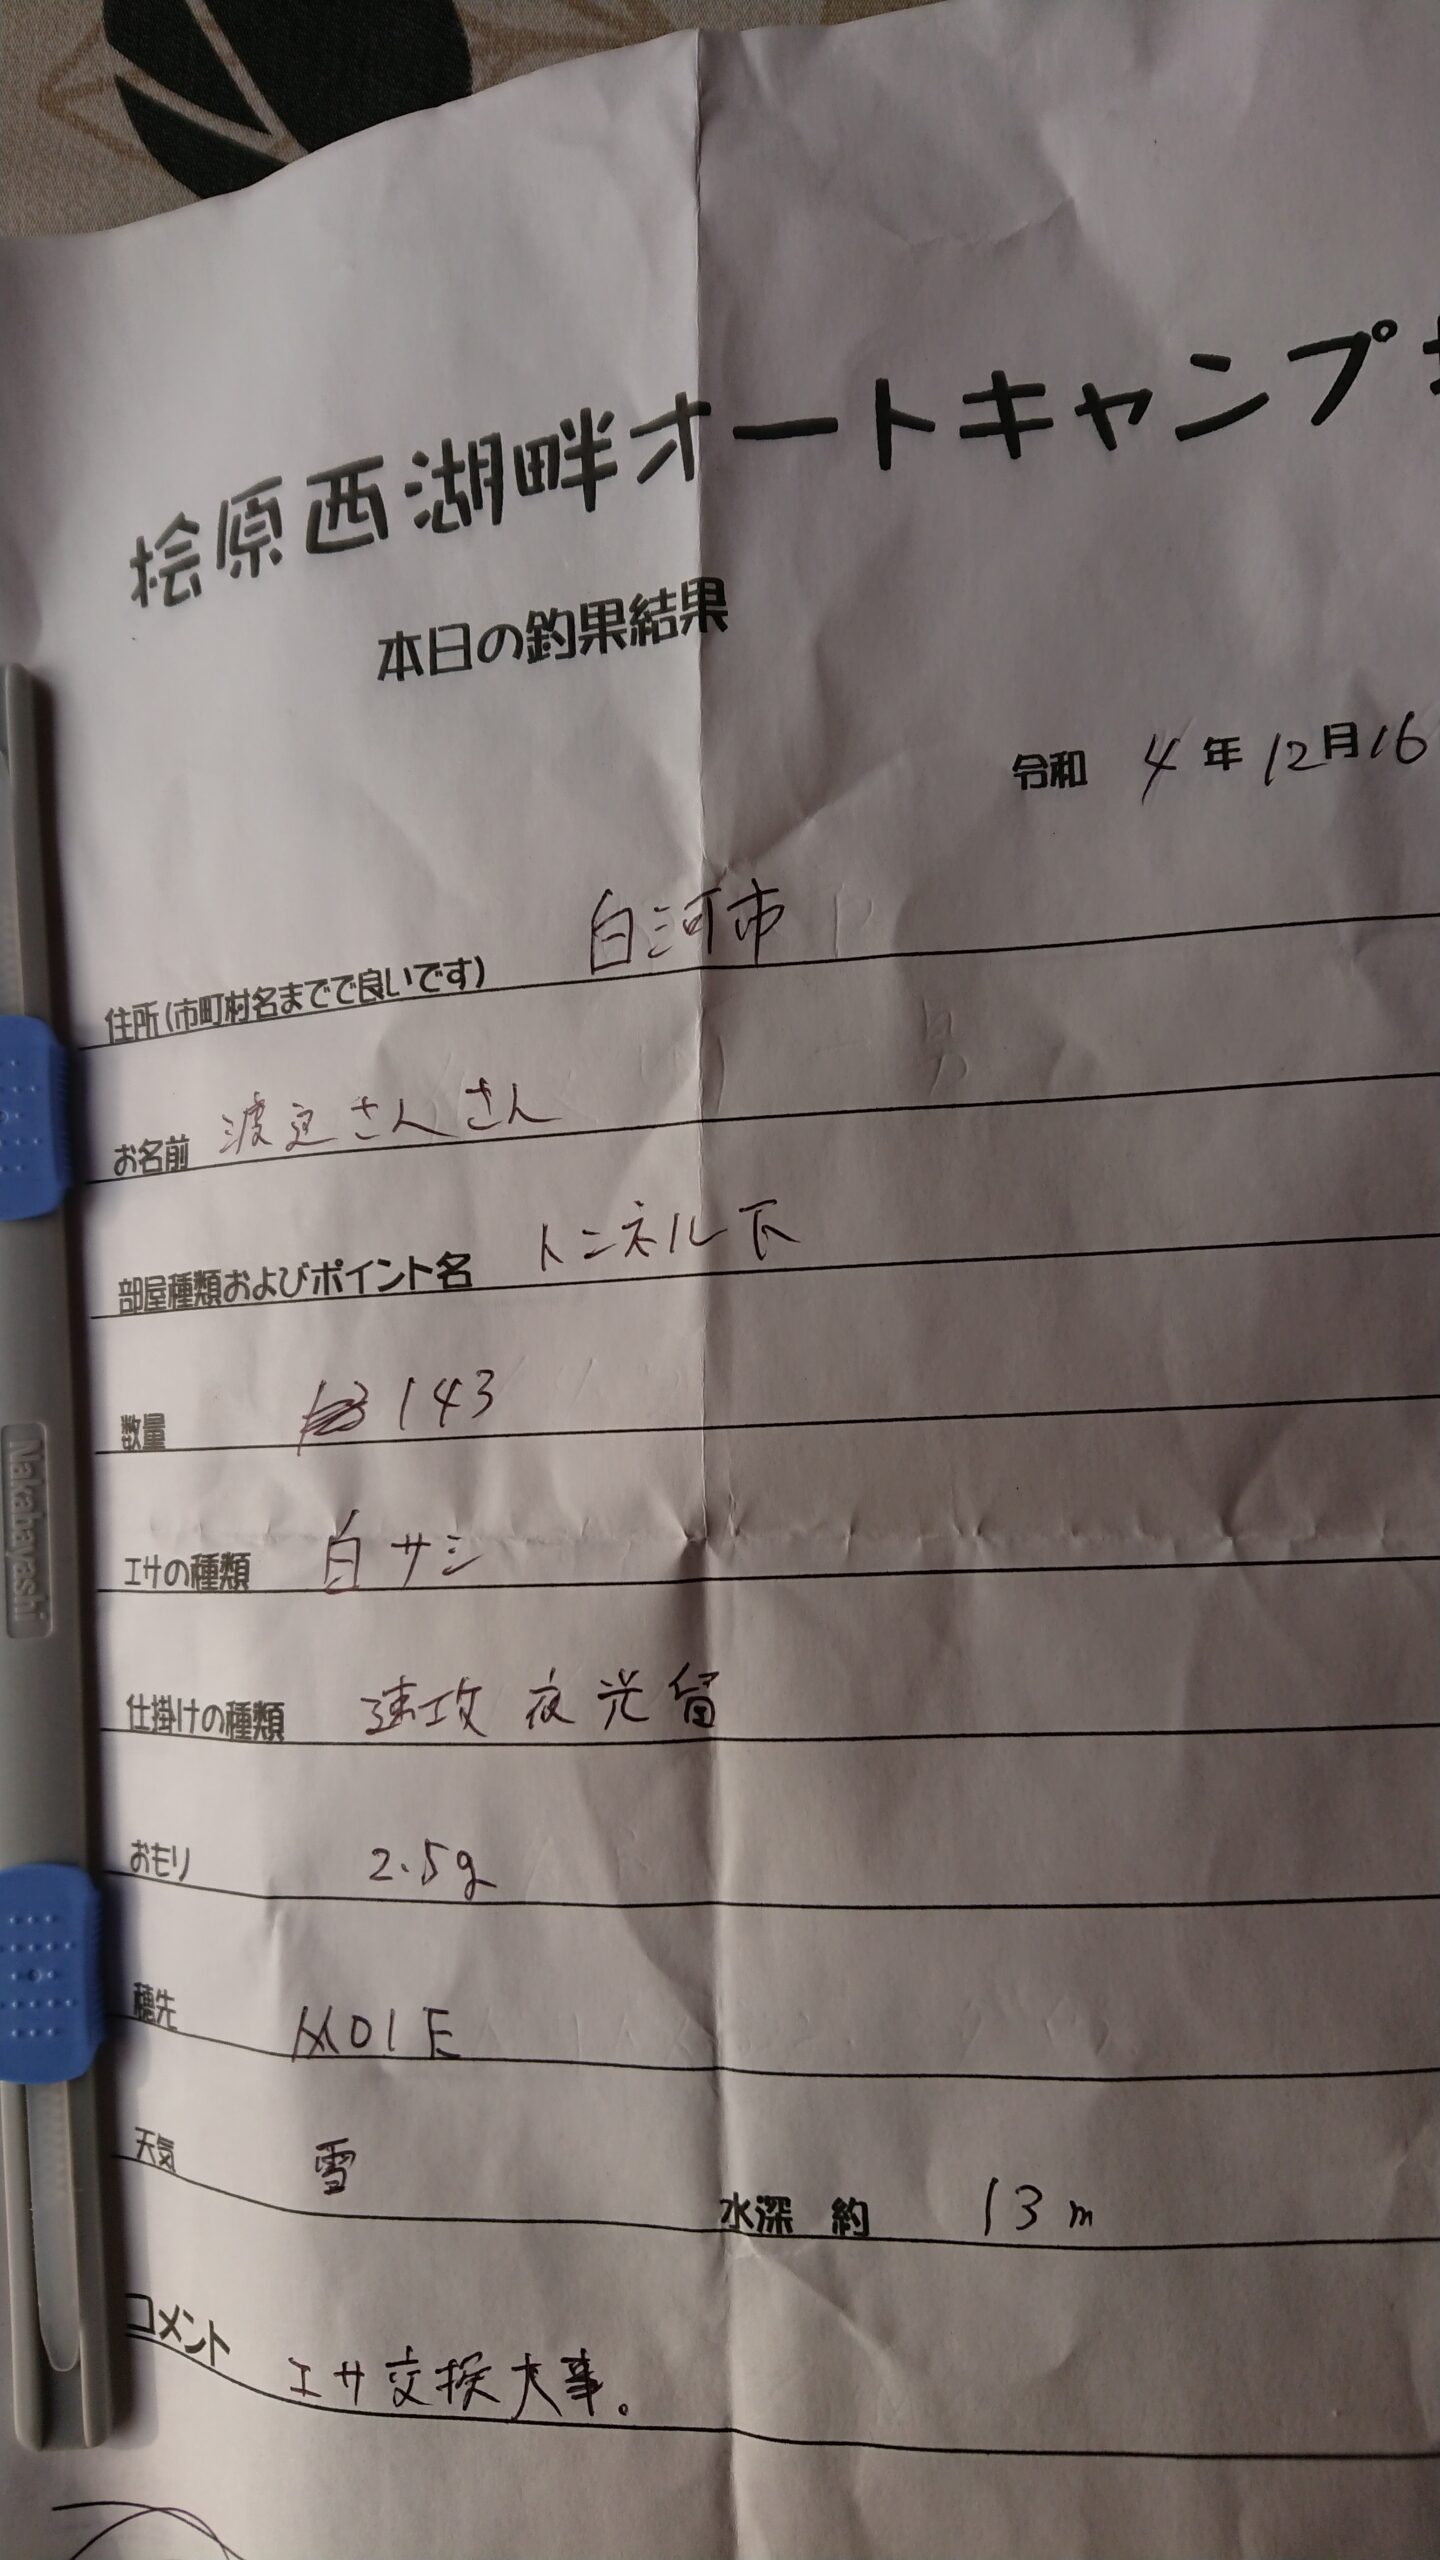 桧原西湖畔オートキャンプ
本日の釣果結果
令和 4年12月16
住所(市町村名までで良いです) 白河市
お名前 渡辺さんさん
部屋種類およびポイント名 トンネル下
数量 143
エサの種類 白サシ
仕掛けの種類 速攻夜光留
おもり 2.5g
穂先 M01E
天気 雪 水深 約 13m
コメント エサ交換大事。
Nakabayashi